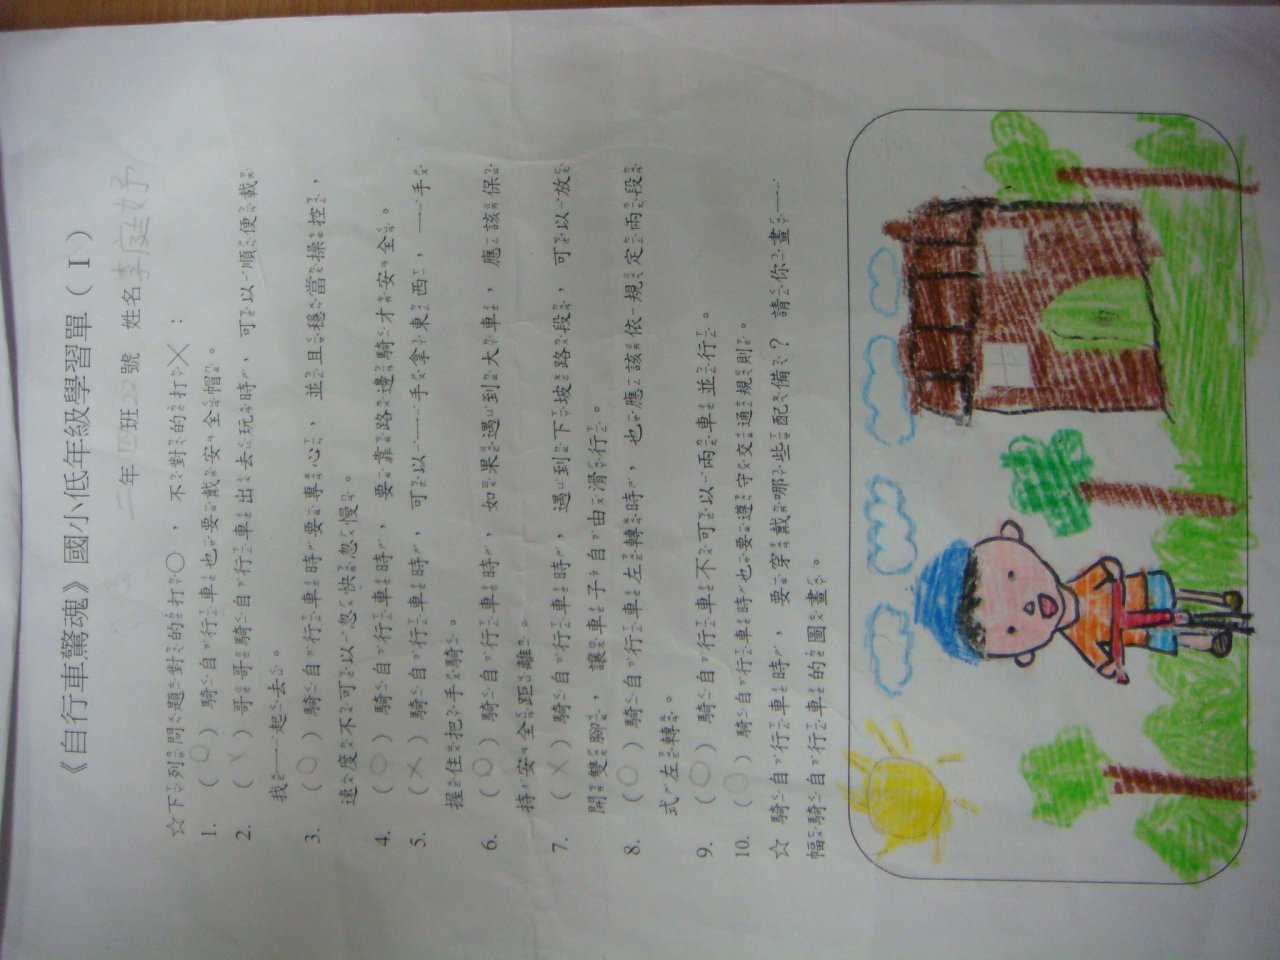 《自行車驚魂》國小低年級學習單(I)
二年四班22號 姓名李庭妤
☆下列問題對的打○，不對的打╳：
1. (○)騎自行車也要戴安全帽。
2. (╳)哥哥騎自行車出去玩時，可以順便載
我一起去。
3. (○)騎自行車時要專心，並且穩當操控，
速度不可以忽快忽慢。
4. (○)騎自行車時，要靠路邊騎才安全。
5. (╳)騎自行車時，可以一手拿東西，一手
握住把手騎。
6. (○)騎自行車時，如果遇到大車，應該保
持安全距離。
7. (╳)騎自行車時，遇到下坡路段，可以放
開雙腳，讓車子自由滑行。
8. (○)騎自行車左轉時，也應該依規定兩段
式左轉。
9. (○)騎自行車不可以兩車並行。
10. (○)騎自行車時也要遵守交通規則。
☆ 騎自行車時，要穿戴哪些配備？請你畫一
幅騎自行車的圖畫。